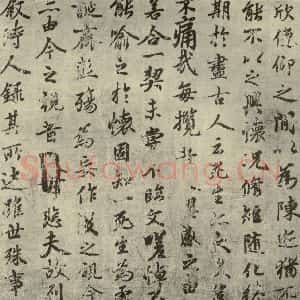 欣俛仰之間以為陳迹
能不以之興懷況脩短隨化終
期於盡古人云死生亦大矣豈
不痛哉每攬昔人興感之由
若合一契未嘗不臨文嗟悼
能喻之於懷固知一死生為虛
誕齊彭殤為妄作後之視今
由今之視昔悲夫故列
敘時人錄其所述雖世殊事
Shufawang.CN